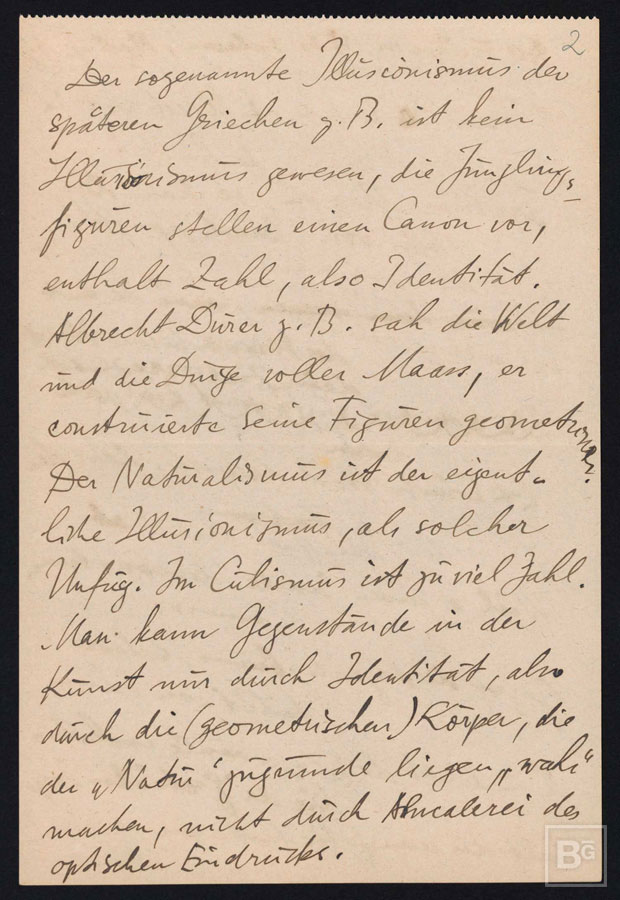 2
Der sogenannte Illusionismus der
späteren Griechen z. B. ist kein
Illusionismus gewesen, die Jünglings-
figuren stellen einen Canon vor,
enthalt Zahl, also Identität.
Albrecht Dürer z. B. sah die Welt
und die Dinge voller Maass, er
construierte seine Figuren geometrisch.
Der Naturalismus ist der eigent-
liche Illusionismus, als solcher
Unfug. Im Cubismus ist zu viel Zahl.
Man kann Gegenstände in der
Kunst nur durch Identität, also
durch die (geometrischen) Körper, die
der „Natur“ zugrunde liegen „wahr“
machen, nicht durch Abmalerei des
optischen Eindrucks.
BG